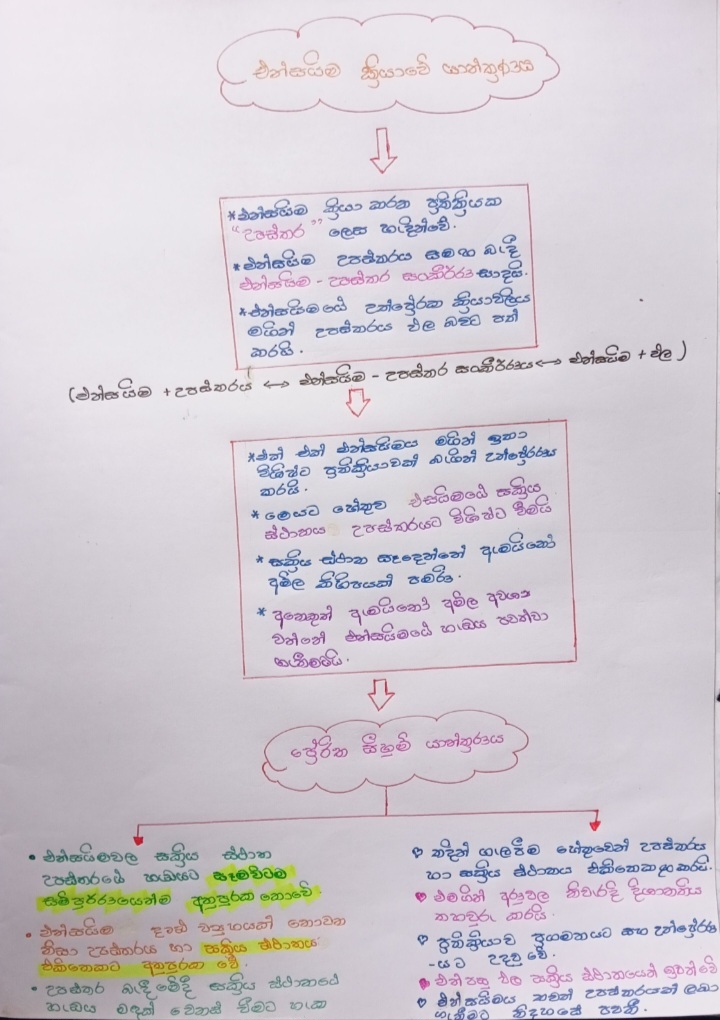 එන්සයිම ක්‍රියාවේ යාන්ත්‍රණය
*එන්සයිම ක්‍රියා කරන ප්‍රතික්‍රියක
"උපස්තර" ලෙස හැඳින්වේ.
*එන්සයිම උපස්තරය සමඟ බැඳී
එන්සයිම - උපස්තර සංකීර්ණ සාදයි.
*එන්සයිමයේ උත්ප්‍රේරක ක්‍රියාවලිය
මගින් උපස්තරය ඵල බවට පත්
කරයි.
(එන්සයිම + උපස්තරය ↔ එන්සයිම - උපස්තර සංකීර්ණය ↔ එන්සයිම + ඵල)
*එක් එක් එන්සයිමය මගින් ඉතා
විශිෂ්ට ප්‍රතික්‍රියාවක් බැගින් උත්ප්‍රේරණය
කරයි.
*මෙයට හේතුව එසයිමයේ සක්‍රිය
ස්ථානය උපස්තරයට විශිෂ්ට වීමයි
*සක්‍රිය ස්ථාන සෑදෙන්නේ ඇමයිනෝ
අම්ල කිහිපයක් පමණි.
* අනෙකුත් ඇමයිනෝ අම්ල අවශ්‍ය
වන්නේ එන්සයිමයේ හැඩය පවත්වා
ගැනීමටයි.
ප්‍රේරිත සීහුම් යාන්ත්‍රණය
• එන්සයිමවල සක්‍රිය ස්ථාන
උපස්තරයේ හැඩයට සෑමවිටම
සම්පූර්ණයෙන්ම අනුපූරක නොවේ.
• එන්සයිම දෘඪ ව්‍යුහයක් නොවන
නිසා උපස්තරය හා සක්‍රිය ස්ථානය
එකිනෙකට අනුපූරක වේ.
• උපස්තර බැඳීමේදී සක්‍රිය ස්ථානයේ
හැඩය මඳක් වෙනස් වීමට හැක
♡ තදින් ගැලපීම හේතුවෙන් උපස්තරය
හා සක්‍රිය ස්ථානය එකිනෙක ළං කරයි.
♥ එමගින් අණුවල නිවැරදි දිශානතිය
තහවුරු කරයි.
♡ ප්‍රතික්‍රියාව ප්‍රගමනයට සහ උත්ප්‍රේරණ
-යට උදවු වේ.
♥ එන් පසු ඵල සක්‍රිය ස්ථානයෙන් ඉවත් වේ
♡ එන්සයිමය තවත් උපස්තරයක් ලබා
ගැනීමට නිදහසේ පවතී.